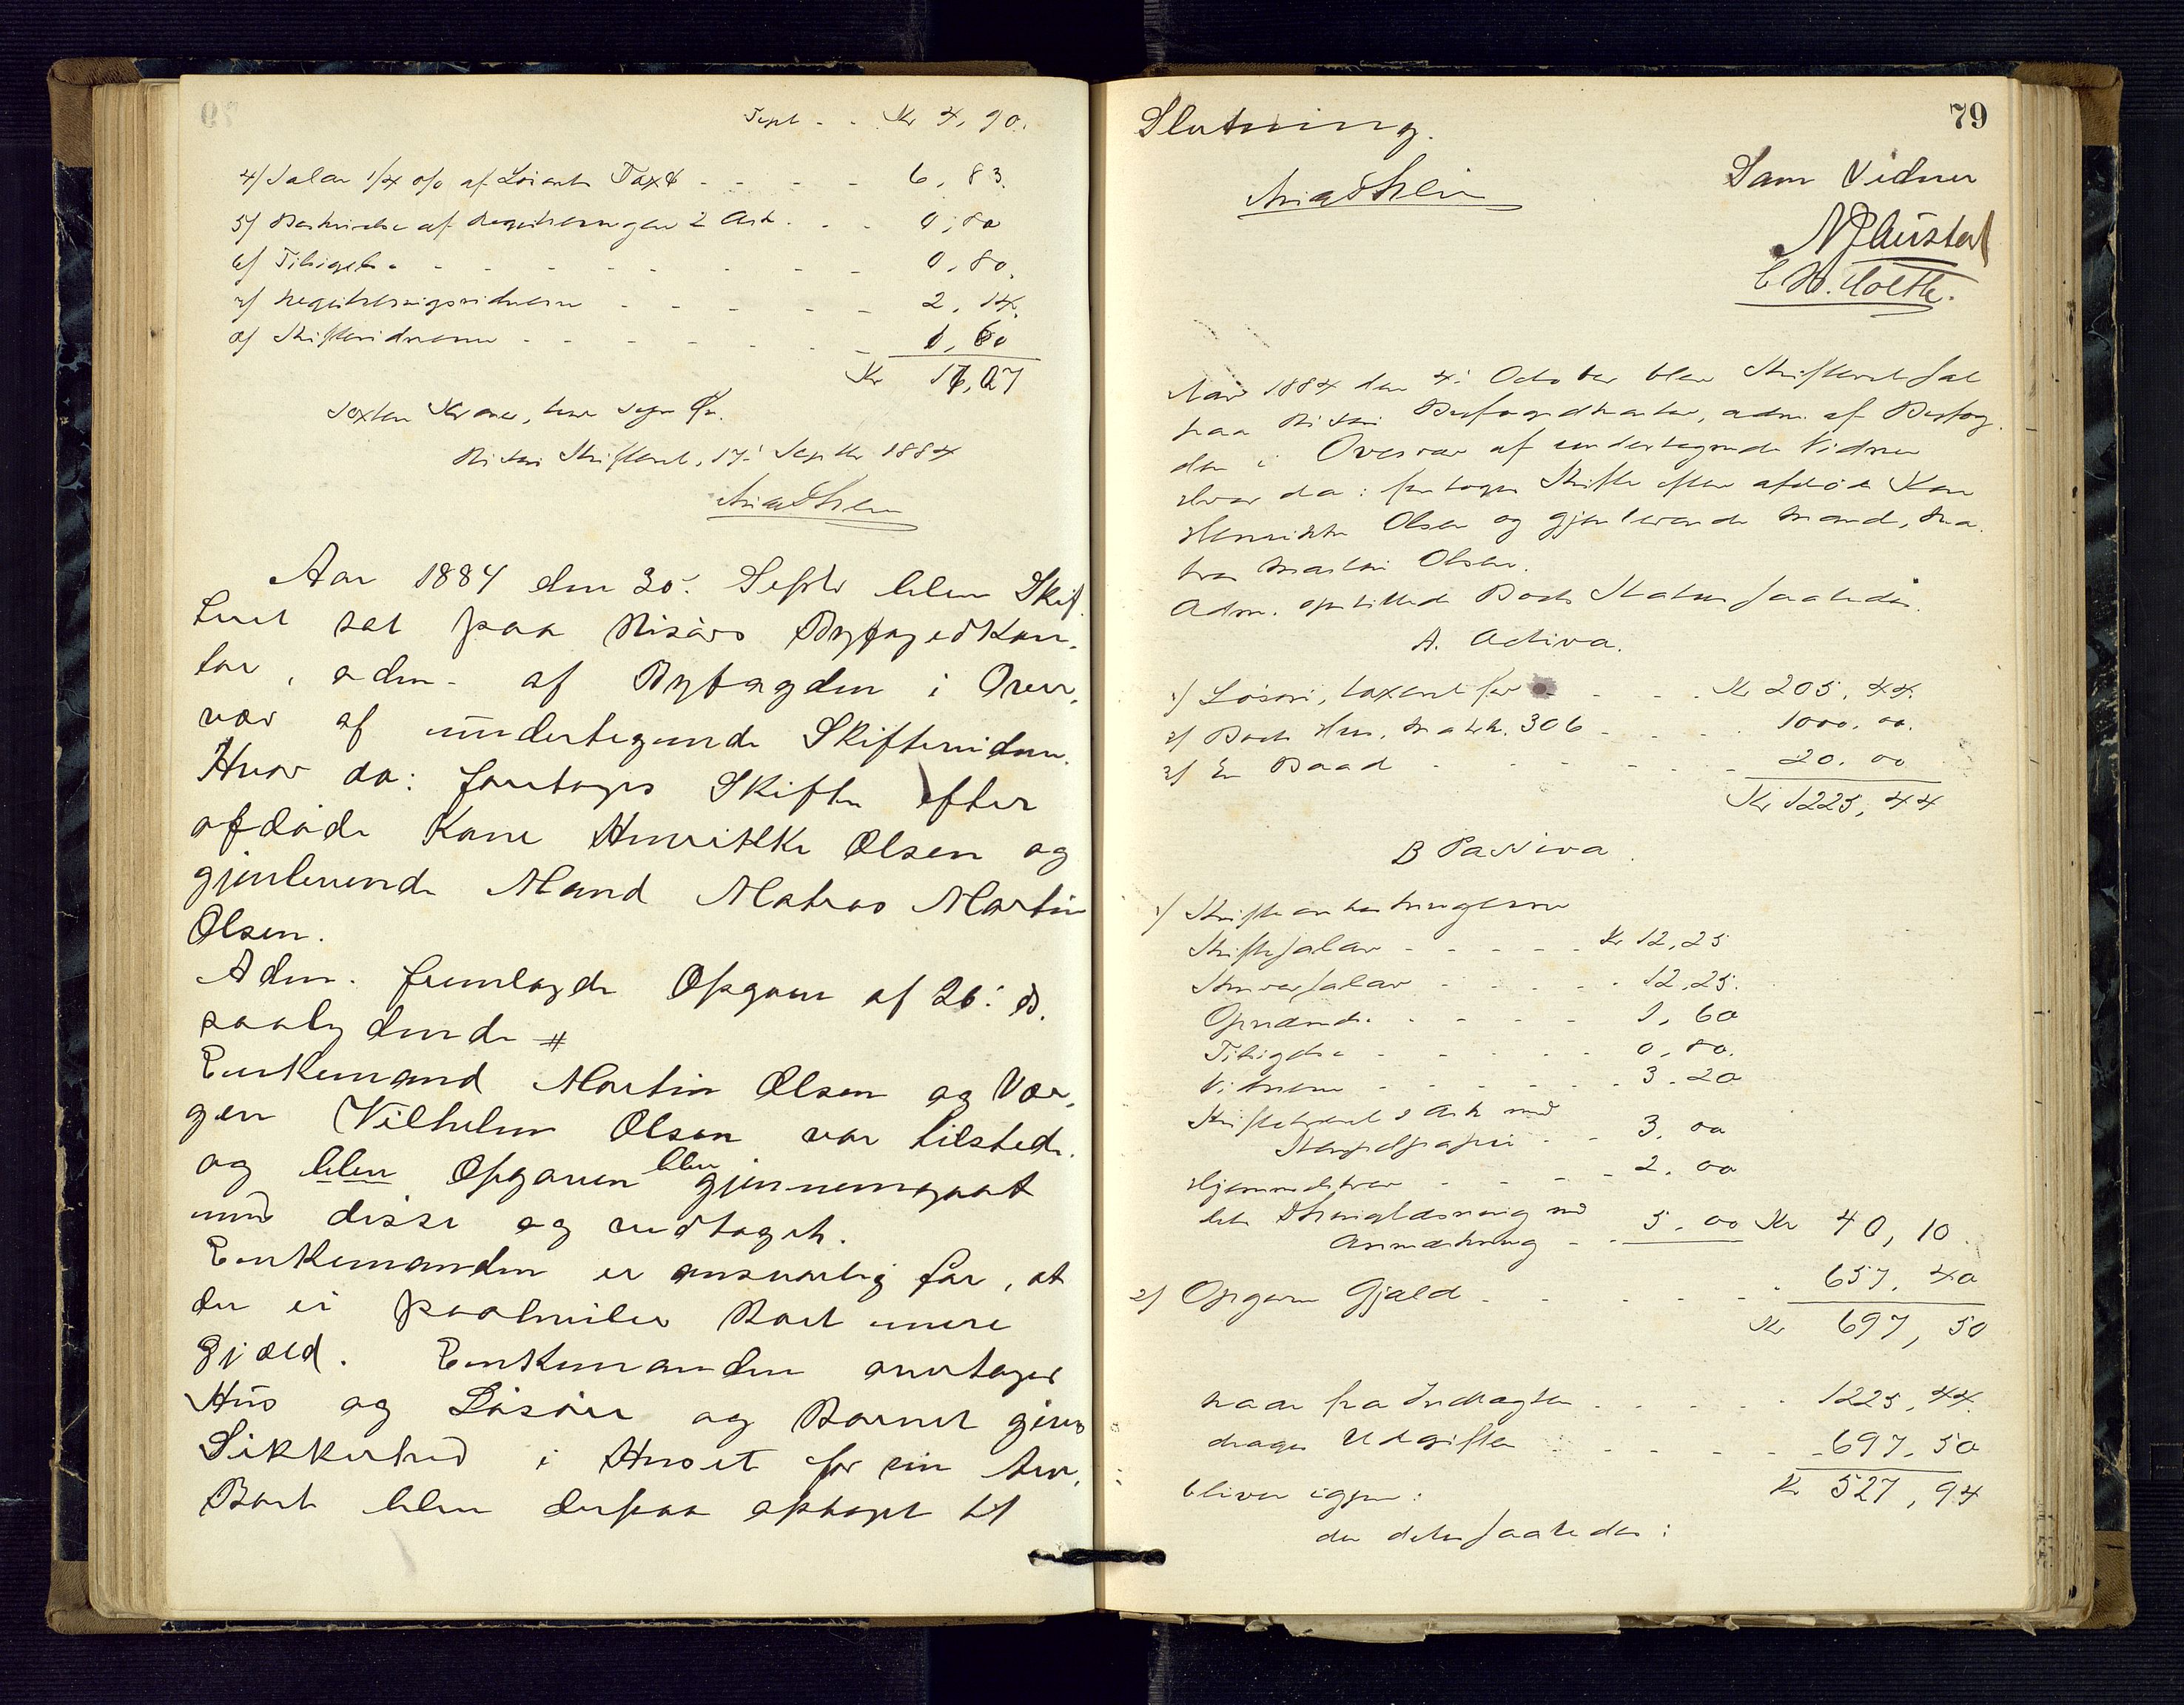 Trspt - - Kr 4,90.
4/ Salær 1/4 o/o af Løsørets Taxt - - - - 6,83.
5/ Beskrivelse af Registreringen 2 Ark. - - 0,80
6/ Tilsigelse - - - - - - - - 0,80.
7/ Registreringsvidnerne - - - - - 2,14.
8/ Skiftevidnerne - - - - - - - 1,60
Kr 17,07
Sexten Kroner, syv Øre.
Risør Skifteret, 17' Septbr 1884
Aar 1884 den 30' Septbr blev Skif-
teret sat paa Risørs Byfogedkon-
tor, adm. af Byfogden i Over-
vær af undertegnede Skiftevidner.
Hvor da: foretoges Skifte efter
afdøde Kone Henrikke Olsen og
gjenlevende Mand Matros Martin
Olsen.
Adm. fremlagde Opgave af 26' ds.
saalydende #
Enkemand Martin Olsen og Vær-
gen Vilhelm Olsen var tilstede.
og blev Opgaven blev gjennemgaaet
med disse og vedtaget.
Enkemanden er ansvarlig for, at
der ei paahviler Boet mere
Gjæld. Enkemanden overtager
Hus og Løsøre og Barnet gives
Sikkerhed i Huset for sin Arv.
Boet blev derpaa optaget til
79
Slutning.
Som Vidner
Aar 1884 den 4' October blev Skifteret sat
paa Risør Byfogedkontor, adm. af Byfog-
den i Overvær af undertegnede Vidner
Hvor da: foretoges Skifte efter afdøde Kone
Henrikke Olsen og gjenlevende Mand, Ma-
tros Martin Olsen.
Adm. opstillede Boets Status saaledes.
A. Activa.
1/ Løsøre, taxeret for - - - Kr 205,44.
2/ Boets Hus, Matrk. 306 - - - 1000,00.
3/ En Baad - - - - - - 20,00
Kr 1225,44
B Passiva.
1/ Skifteomkostningerne
Skiftesalær - - - - - Kr 12,25
Skriversalær - - - - - 12,25.
Opnævnelse - - - - 1,60
Tilsigelse - - - - - 0,80.
Vidnerne - - - - - - 3,20
Skiftebrevet 2 Ark med
Stempelpapir - - 3,00
Hjemmelsbrev - - - - 2,00
dets Thinglæsning med
Anmærkning - - 5,00 Kr 40,10.
2/ Opgiven Gjæld - - - - - - 657,40
Kr 697,50
naar fra Indtægten - - - - - 1225,44.
drages Udgiften - - - - - 697,50
bliver igjen: Kr 527,94
der deles saaledes: